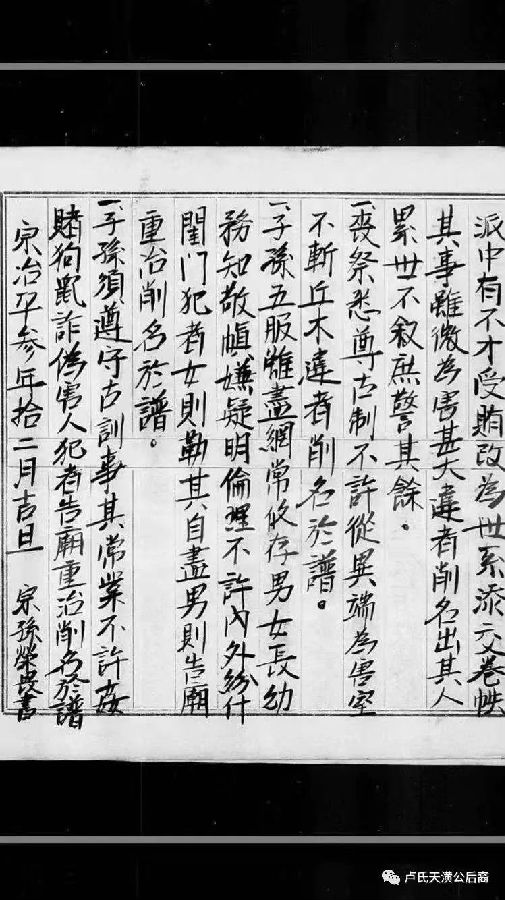 派中有不才受賄改為世系添文卷帙
其事雖微為害甚大違者削名出其人
累世不敘庶警其餘。
一喪祭悉尊古制不許從異端為害室
不斬丘木違者削名於譜。
一子孫五服雖盡綱常攸存男女長幼
務知敬慎嫌疑明倫理不許內外紛什
閨门犯者女則勒其自盡男則告廟
重治削名於譜。
一子孫須遵守古訓事其常業不許姦
賭狗鼠詐偽害人犯者告廟重治削名於譜
宗治平参年拾二月吉旦 宗孫榮書
卢氏天潢公后裔